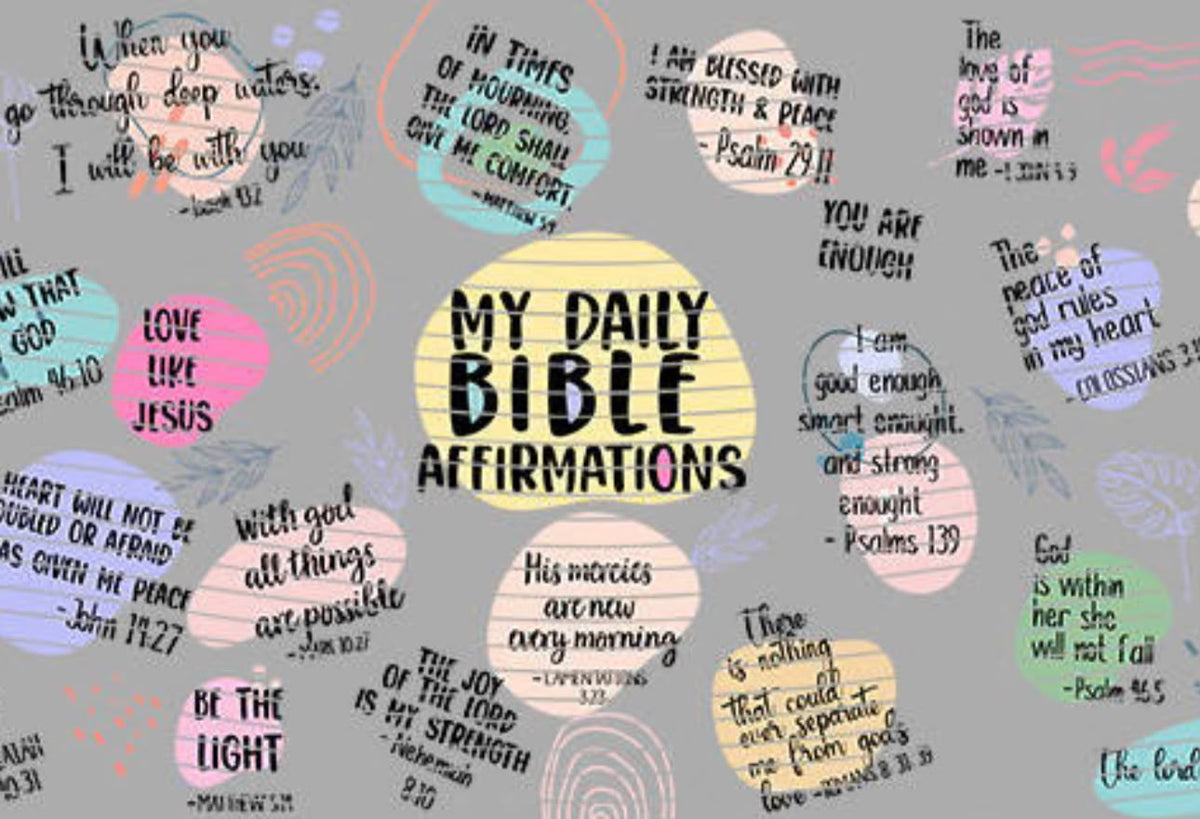 When you
go through deep waters.
I will be with you
IN TIMES
OF MOURNING.
THE LORD SHALL
GIVE ME COMFORT.
- MATTHEW 5:4
I AM BLESSED WITH
STRENGTH & PEACE
- Psalm 29:11
The
love of
god is
shown in
me - 1 JOHN 4:9
YOU ARE
ENOUGH
The
peace of
god rules
in my heart
- COLOSSIANS
THAT
GOD
46:10
LOVE
LIKE
JESUS
MY DAILY
BIBLE
AFFIRMATIONS
I am
good enough
smart enought.
and strong
enought
- Psalms 139
HEART WILL NOT BE
OR AFRAID
GIVEN ME PEACE
- John 14:27
with god
all things
are possible
10:27
His mercies
are new
every morning
- LAMENTATIONS
3:23
God
is within
her she
will not fail
- Psalm 46:5
BE THE
LIGHT
- MATTHEW 5:14
THE JOY
OF THE LORD
IS MY STRENGTH
- Nehemiah
8:10
There
is nothing
that could
ever separate
me from god's
love - ROMANS 8:
The lord